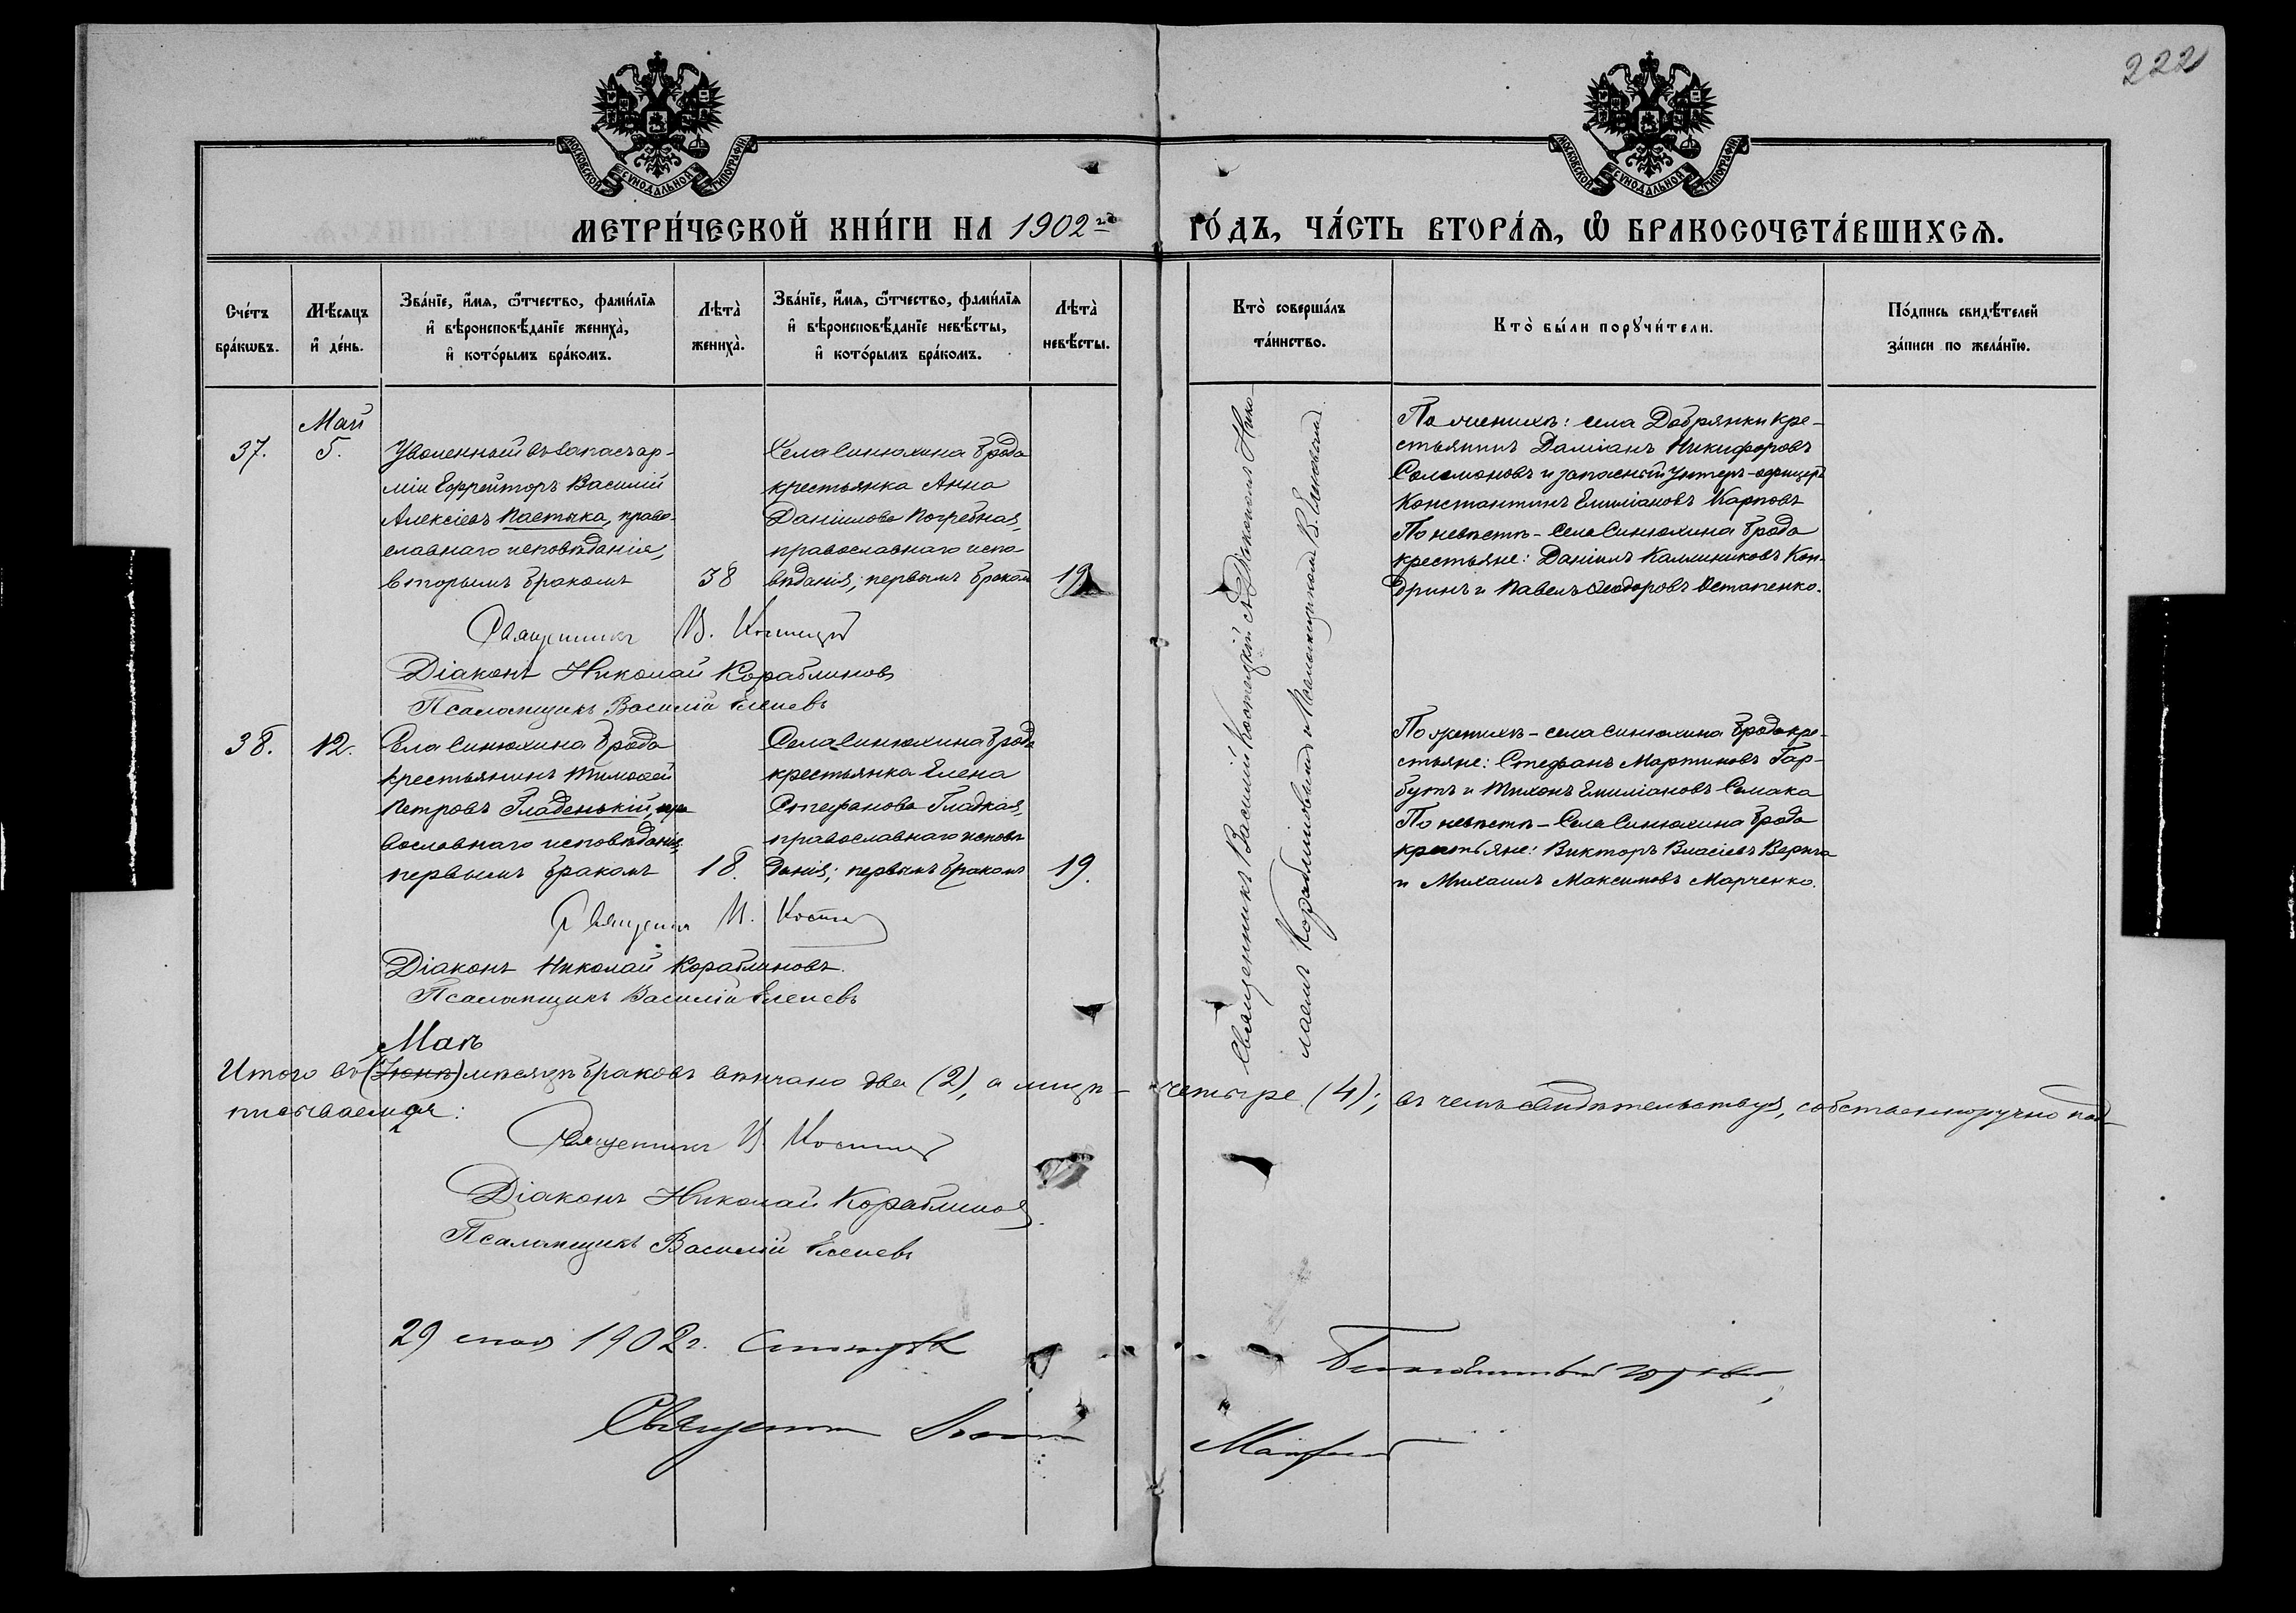 222
МОСКОВСКОЙ СѴНОДАЛЬНОЙ ТИПОГРАФІИ
МОСКОВСКОЙ СѴНОДАЛЬНОЙ ТИПОГРАФІИ
МЕТРИ́ЧЕСКОЙ КНИ́ГИ НА 1902 го́дъ, ЧА́СТЬ ВТОРА́Ѧ, Ѽ БРАКОСОЧЕТА́ВШИХСѦ.
Сче́тъ
бра́кѡвъ.
Мѣ́сяцъ
и҆ де́нь.
Зва́нїе, и҆́мѧ, ѻ҆́тчество, фами́лїѧ
и҆ вѣроисповѣ́данїе жениха̀,
и҆ кото́рымъ бра́комъ.
Лѣта̀
жениха̀.
Зва́нїе, и҆́мѧ, ѻ҆́тчество, фами́лїѧ
и҆ вѣроисповѣ́данїе невѣ́сты,
и҆ кото́рымъ бра́комъ.
Лѣта̀
невѣ́сты.
Кто̀ соверша́лъ
та́инство.
Кто̀ бы́ли порꙋчи́тели.
По́дпись свидѣ́телей
за́писи по жела́нїю.
37.
Май
5.
Уволенный въ запасъ ар-
міи Ефрейторъ Василій
Алексіевъ Пастыка, право-
славнаго исповѣданія,
вторымъ бракомъ
38
Села Синюхина Брода
крестьянка Анна
Даніилова Погребная,
православнаго испо-
вѣданія; первымъ бракомъ
19.
По женихѣ: села Добрянки кре-
стьянинъ Даміанъ Никифоровъ
Соломоновъ и запасный унтеръ-офицеръ
Константинъ Емиліановъ Карповъ
По невѣстѣ - села Синюхина Брода
крестьяне: Даніилъ Каллиниковъ Кон-
дринъ и Павелъ Ѳеодоровъ Остапенко.
Священникъ В. Костецкій
Діаконъ Николай Кораблиновъ
Псаломщикъ Василій
38.
12.
Села Синюхина Брода
крестьянинъ Тимоѳей
Петровъ Гладенькій, пра-
вославнаго исповѣданія,
первымъ бракомъ
18.
Села Синюхина Брода
крестьянка Елена
Стефанова Гладкая,
православнаго исповѣ-
данія; первымъ бракомъ
19.
По женихѣ - села Синюхина Брода кре-
стьяне: Стефанъ Мартиновъ Гар-
бутъ и Тихонъ Емиліановъ Семака
По невѣстѣ - Села Синюхина Брода
крестьяне: Викторъ Власіевъ
и Михаилъ Максимовъ Марченко.
Священникъ В. Костецкій
Діаконъ Николай Кораблиновъ.
Псаломщикъ Василій
Священникъ Василій Костецкій съ Діакономъ Нико-
лаемъ Кораблиновымъ и Псаломщикомъ В.
Маѣ
Итого въ (Іюнѣ) мѣсяцѣ браковъ вѣнчано два (2), а лицъ - четыре (4); въ чемъ свидѣтельствуя, собственноручно под-
писываемся:
Священникъ В. Костецкій
Діаконъ Николай Кораблиновъ.
Псаломщикъ Василій
29 мая 1902 г.
Священникъ